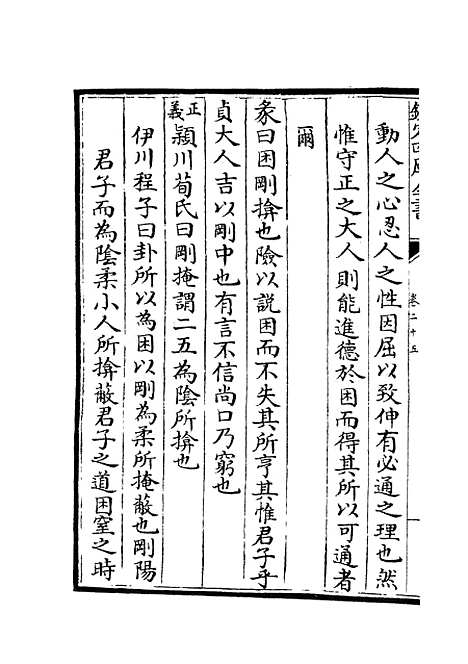 欽定四庫全書
卷二十五
動人之心忍人之性因屈以致伸有必通之理也然
惟守正之大人則能進德於困而得其所以可通者
爾
彖曰困剛揜也險以說困而不失其所亨其惟君子乎
貞大人吉以剛中也有言不信尚口乃窮也
正義潁川荀氏曰剛掩謂二五為陰所揜也
伊川程子曰卦所以為困以剛為柔所掩蔽也剛陽
君子而為陰柔小人所揜蔽君子之道困窒之時